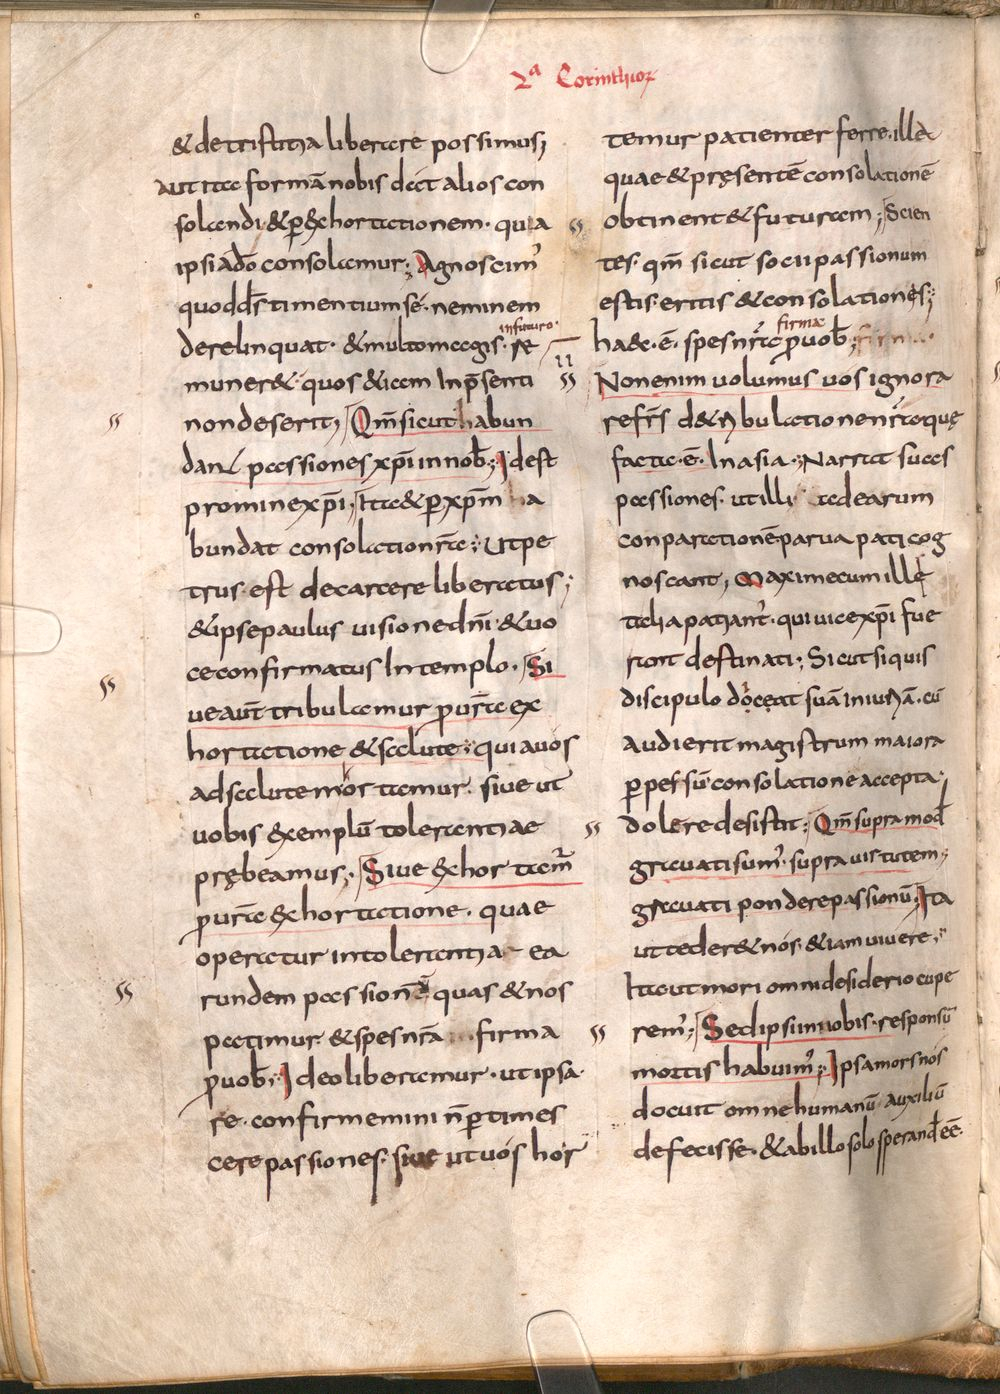 2ª Corinthior
& de tristitia liberare possimus;
aut ita formā nobis dat alios con
solandi & p exhortationem· quia
ipsi a dō consolamur; Agnoscim'
quod ds timentium se· neminem
derelinquat· & multo magis· re
in futuro·
muner& quos & iam in psenti
non deserit; Qm̄ sicut habun
dant passiones xp̄i in nob; Id est
pro nomine xp̄i; Ita & p xp̄m a
bundat consolatio nr̄a; Ut pe
trus est de carcere liberatus;
& ipse paulus visione dn̄i & vo
ce confirmatus In templo· Si
ve aut tribulamur p ur̄a ex
hortatione & salute; qui a vos
ad salutem ortamur· sive ut
vobis exemplū tolerantiae
prębeamus; Sive exhortam'
p ur̄a exhortatione· quae
operatur in tolerantia ea
rundem passionū quas & nos
patimur· & spes nr̄a firma
p vob; Ideo liberamur· ut ipsa
re· confirmemini n̄ ptimes
cere passiones· sive ut vos hor
temur patienter ferre· illa
quae & pręsentē consolationē
obtinent & futuram; Scien
tes· qm̄ sicut socii passionum
estis· eritis & consolationes;
haec· ē· spes nr̄a p vob; firma
firmæ
II
Non enim volumus vos ignora
re fr̄s de tribulatione nr̄a quę
facta· ē· In asia; Narrat suas
passiones· ut illi ad earum
conparationē parva pati cog
noscant; Maxime cum illę
talia patiant'· qui vice xp̄i fue
rant destinati; Sicut si quis
discipulo doceat suā iniuriā· cū
audierit magistrum maiora
ppessū· consolatione accepta·
dolere desistat; Qm̄ supra mod
gravati sum'· supra virtutem;
gravati pondere passionū; Ita
ut teder& nos· & iam vivere;
Ita ut mori omni desiderio cupe
rem'; Sed ipsi in nobis· responsū
mortis habuim'; Ipsa mors nos
docuit omne humanū auxiliū
defecisse· & ab illo solo sperand eē·